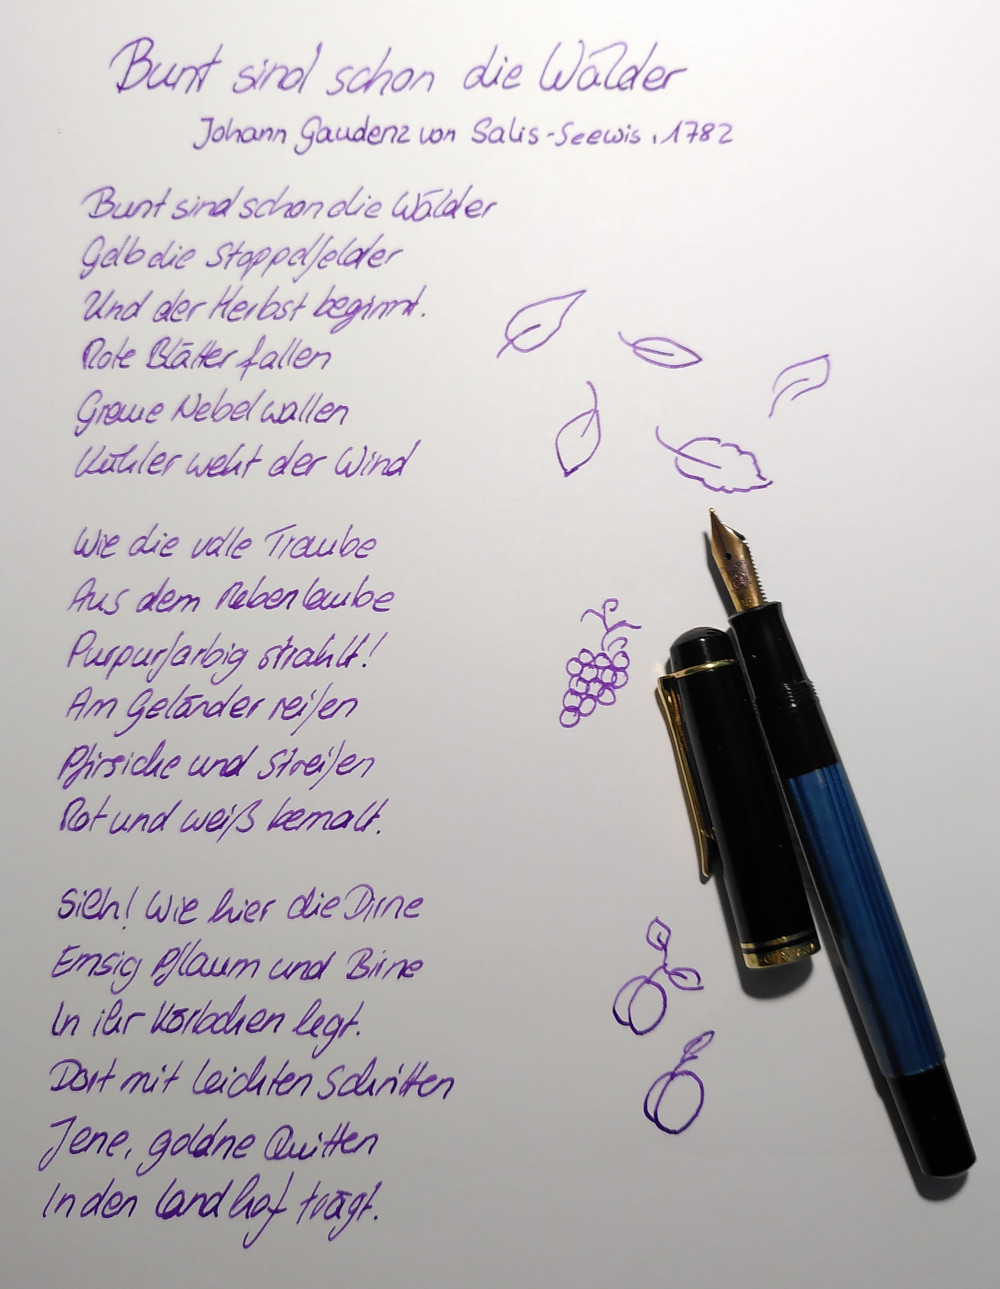 Bunt sind schon die Wälder
Johann Gaudenz von Salis-Seewis, 1782
Bunt sind schon die Wälder
Gelb die Stoppelfelder
Und der Herbst beginnt.
Rote Blätter fallen
Graue Nebel wallen
Kühler weht der Wind
Wie die volle Traube
Aus dem Rebenlaube
Purpurfarbig strahlt!
Am Geländer reifen
Pfirsiche und Streifen
Rot und weiß bemalt.
Sieh! Wie hier die Dirne
Emsig Pflaum und Birne
In ihr Körbchen legt.
Dort mit leichten Schritten
Jene, goldne Quitten
In den Landhof trägt.